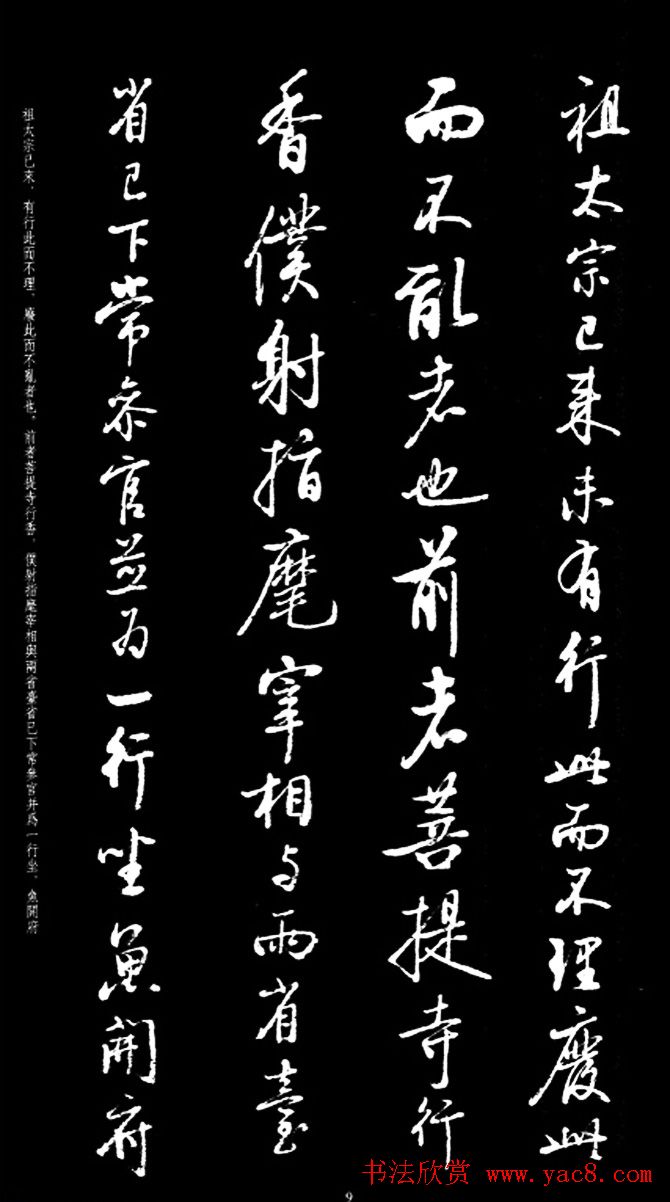 祖太宗已来未有行此而不理廢此
而不亂者也前者菩提寺行
香僕射指麾宰相与兩省臺
省已下常参官並为一行坐魚開府
祖太宗已來，有行此而不理、廢此而不亂者也。前者菩提寺行香，僕射指麾宰相與兩省臺省已下常參官并爲一行坐，魚開府
9
书法欣赏 www.yac8.com